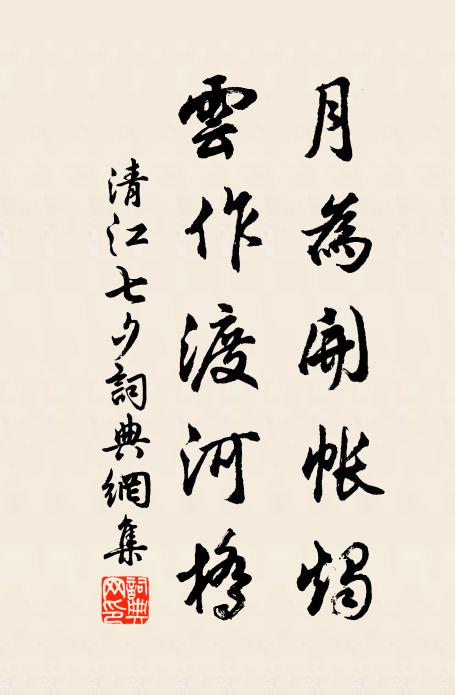 月為開帳燭
雲作渡河橋
清江七夕詞典網集
詞典網印